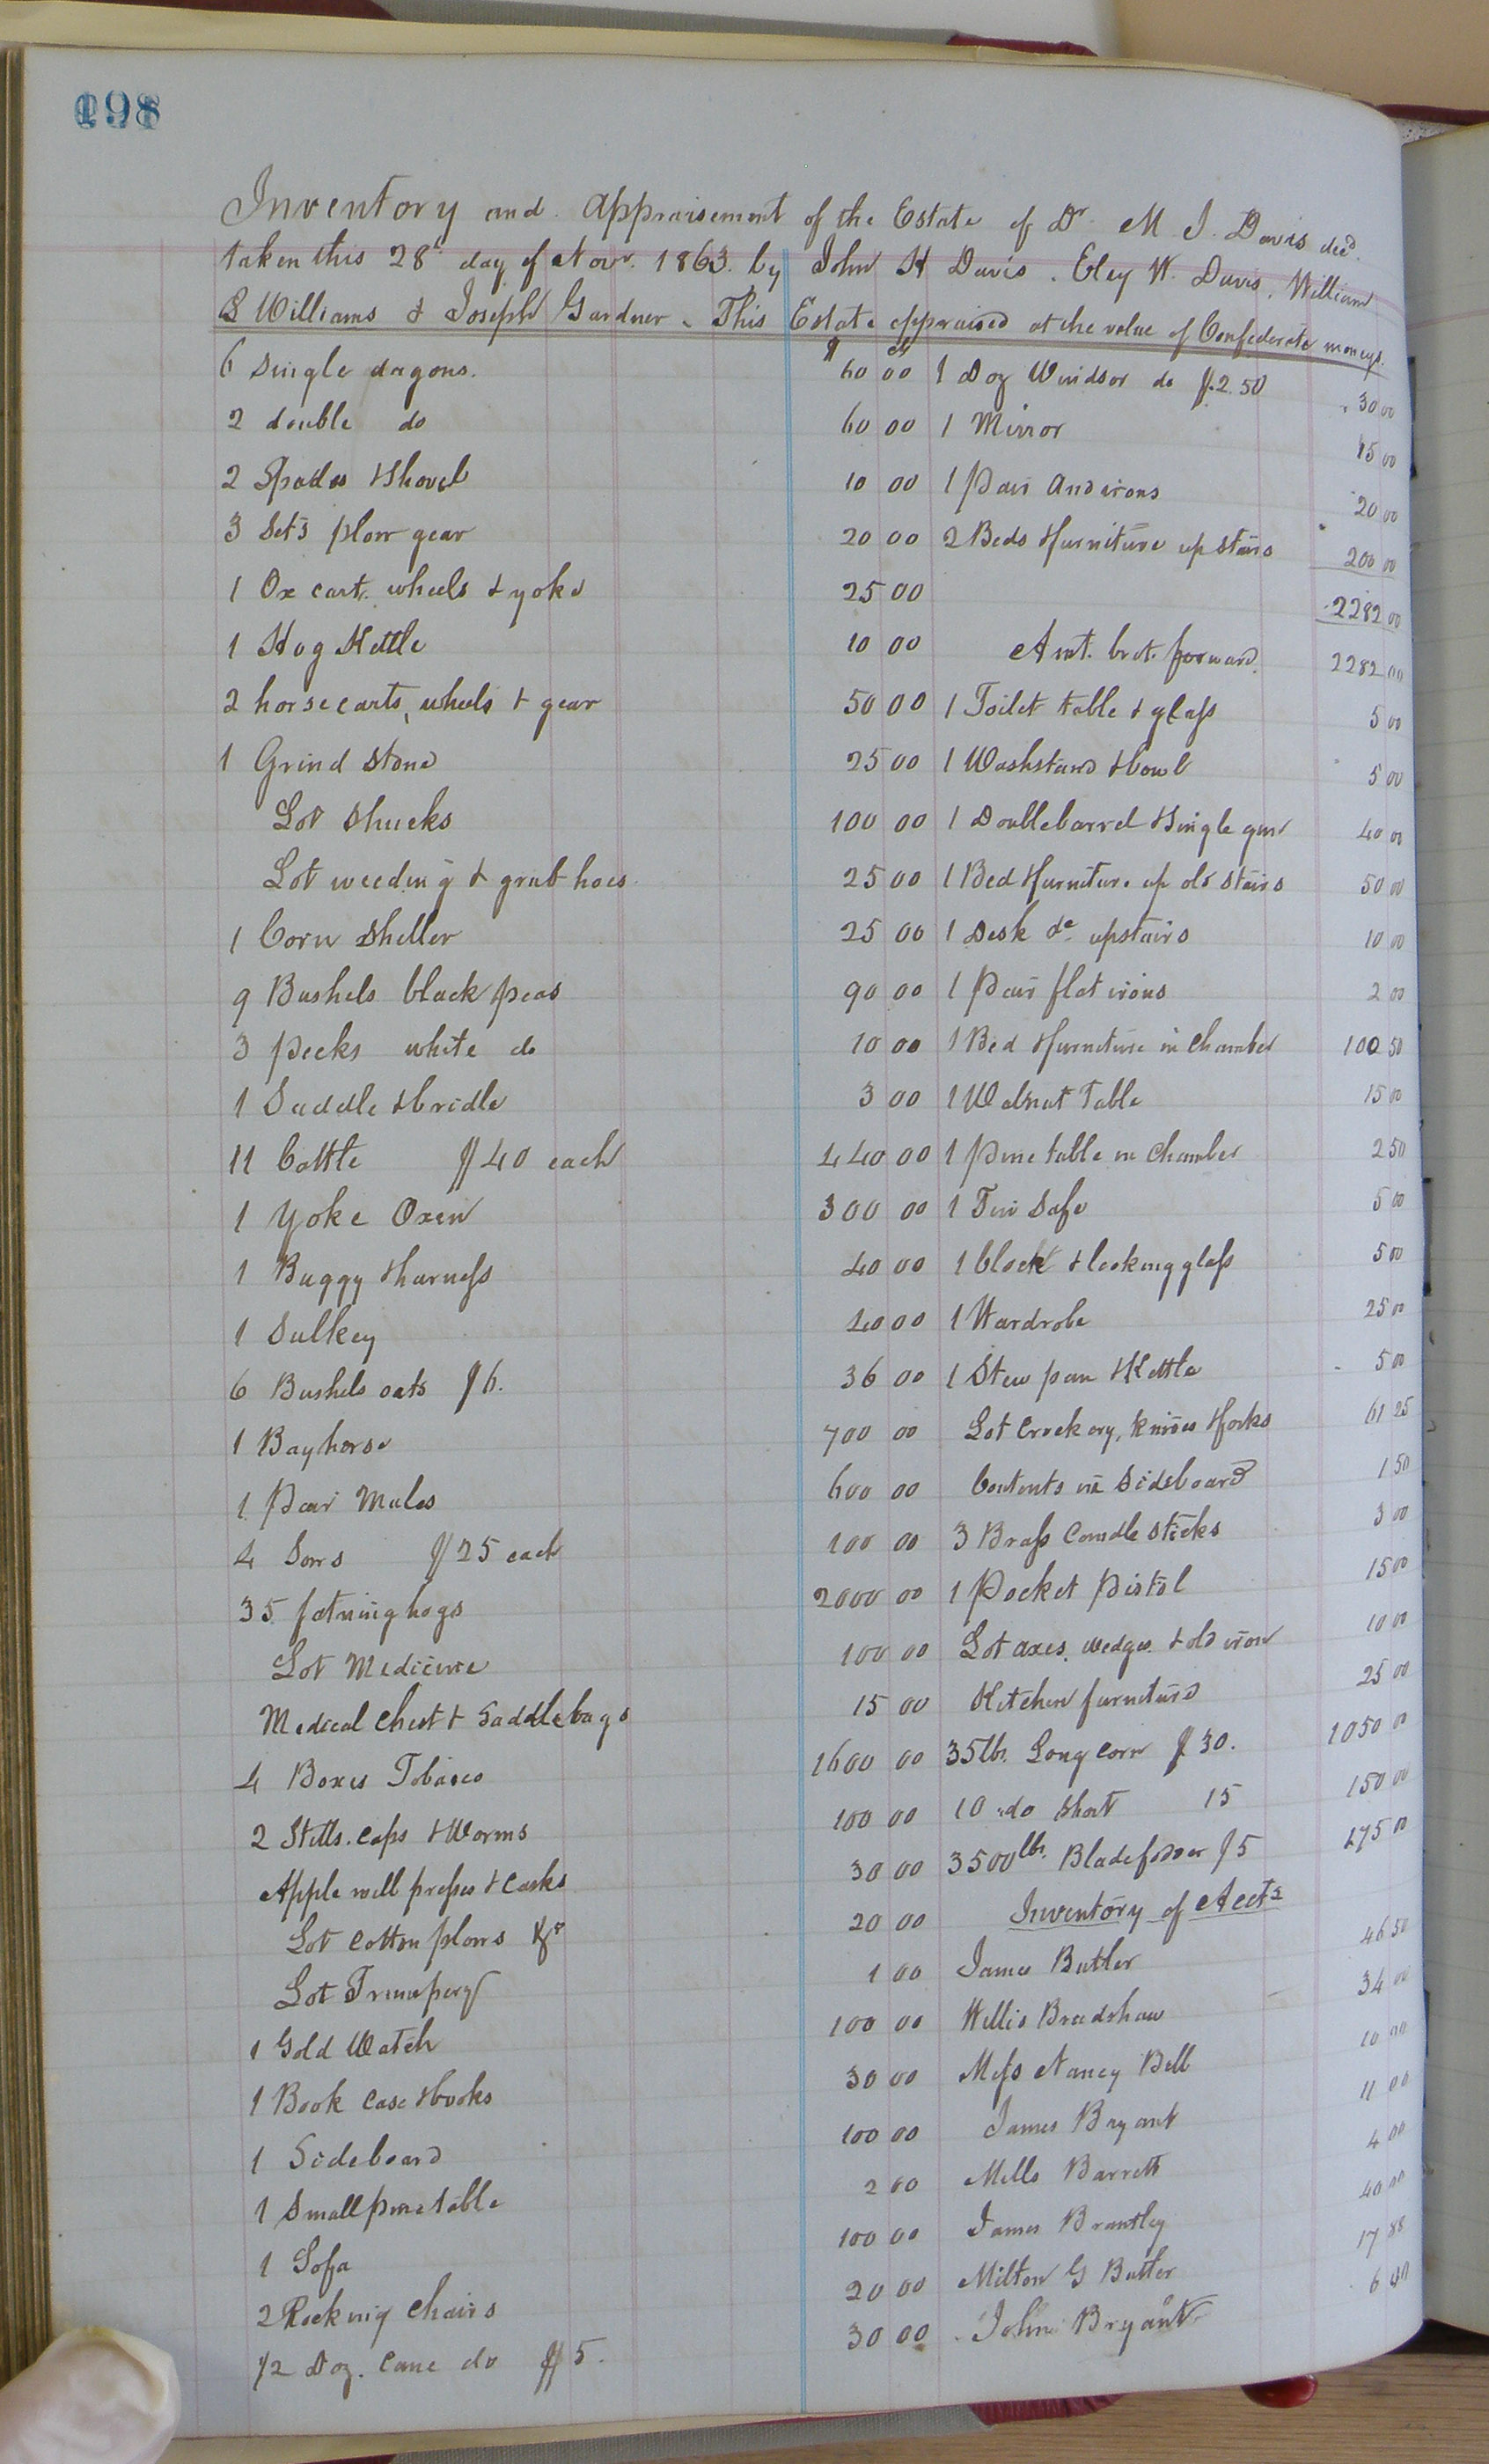 498
Inventory and Appraisement of the Estate of Dr. M J. Davis decd.
taken this 28th day of Novr. 1863. by John H Davis. Eley W. Davis, William
S Williams & Joseph Gardner. This Estate appraised at the value of Confederate moneys.
$ cts
6 Single dagons. 60 00
2 double do 60 00
2 Spades & Shovel 10 00
3 Sets plow gear 20 00
1 Ox cart. wheels & yoke 25 00
1 Hog Kettle 10 00
2 horsecarts, wheels & gear 50 00
1 Grind Stone 25 00
Lot Shucks 100 00
Lot weeding & grub hoes 25 00
1 Corn Sheller 25 00
9 Bushels black peas 90 00
3 pecks white do 10 00
1 Saddle & bridle 3 00
11 Cattle $40 each 440 00
1 Yoke Oxen 300 00
1 Buggy & harness 40 00
1 Sulkey 40 00
6 Bushels oats $6. 36 00
1 Bayhorse 700 00
1 Pair Mules 600 00
4 Sows $25 each 100 00
35 fatning hogs 2000 00
Lot Medicine 100 00
Medical Chest & Saddlebags 15 00
4 Boxes Tobacco 1600 00
2 Stills. caps & Worms 100 00
Apple mill presses & casks 30 00
Lot cotton plows &c 20 00
Lot 1 00
1 Gold Watch 100 00
1 Book case & books 30 00
1 Sideboard 100 00
1 Small pine table 2 00
1 Sofa 100 00
2 Rocking Chairs 20 00
1/2 Doz. Cane do $5. 30 00
1 Doz Windsor do $2.50 30 00
1 Mirror 15 00
1 Pair Andirons 20 00
2 Beds & furniture up stairs 200 00
2282 00
Amt. brot. forward. 2282 00
1 Toilet table & glass 5 00
1 Washstand & bowl 5 00
1 Doublebarrel & Single gun 40 00
1 Bed & furniture up old stairs 50 00
1 Desk do upstairs 10 00
1 Pair flat irons 2 00
1 Bed & furniture in Chamber 100 50
1 Walnut Table 15 00
1 Pine table in Chamber 2 50
1 Tin Safe 5 00
1 Clock & looking glass 5 00
1 Wardrobe 25 00
1 Stew pan & Kettle 5 00
Lot Crockery, Knives & forks 61 25
Contents in Sideboard 1 50
3 Brass Candle sticks 3 00
1 Pocket Pistol 15 00
Lot axes, wedges & old iron 10 00
Kitchen furniture 25 00
35 lbs. Long corn $30. 1050 00
10 do Short 15 150 00
3500 lbs. Bladefodder $5 175 00
Inventory of Accts
James Butler 46 50
Willis Bradshaw 34 00
Miss Nancy Bell 10 00
James Bryant 11 00
Mills Barrett 4 00
James Brantley 40 00
Milton G Butler 17 88
John Bryant 6 40